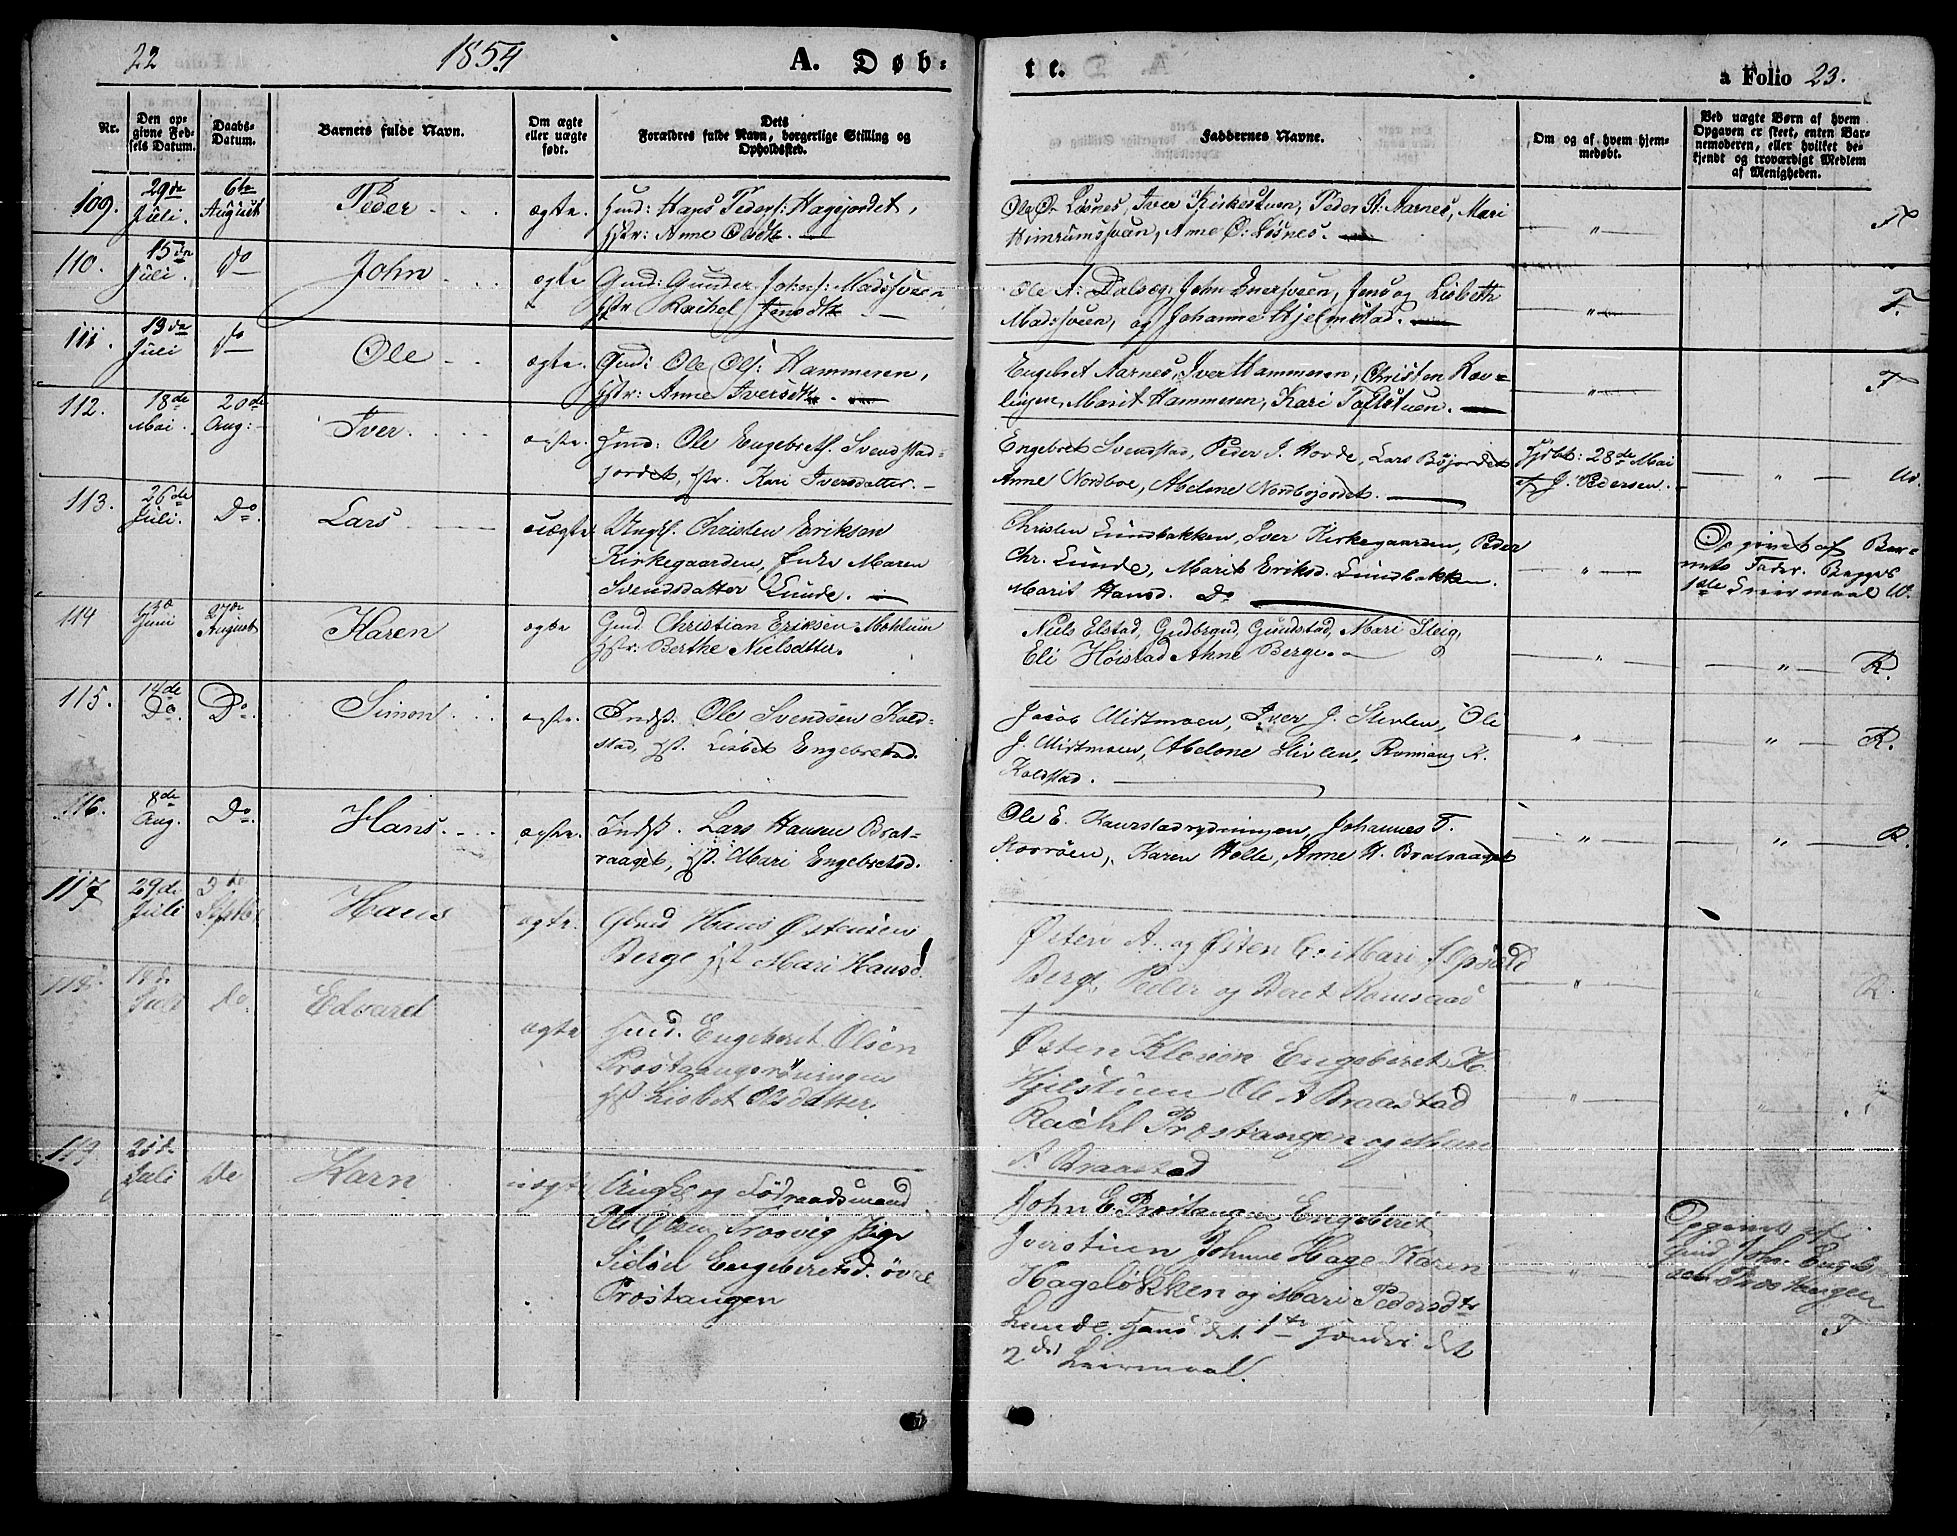 22 1854 A. Døb-
te. a Folio 23.
Nr. Den op-givne Fød-sels Datum. Daabs-Datum. Barnets fulde Navn. Om ægte eller uægte født. Dets Forældres fulde Navn, borgerlige Stilling og Opholdssted.
Faddernes Navne. Om og af hvem hjem-medøbt. Ved uægte Børn af hvem Opgaven er skeet, enten Bar-nemoderen, eller hvilket be-kjendt og troværdigt Medlem af Menigheden.
109. 29de Juli. 6te August Peder ægte. Hans Peders: Hagejordet,
Hstr: Anne Olsdtr.
Ole O. Løsnes, Iver Kirkestuen, Peder H: Aarnes, Mari
Anne O: Løsnes. " T
110. 15de Juli. Do John ægte Gmd: Gunder Johns: Madssveen
Hstr Rachel Jensdtr
Ole A: John Jens og Lisbeth
Madssveen, og Johanne Hjelmstad. " T.
111. 13de Juli Do Ole ægte. Gmd: Ole Ols: Hammeren,
Hstr: Anne Iversdtr.
Engebret Aarnes, Iver Hammeren, Christen Røv-
lingen, Marit Hammeren, Kari Toftstuen. " T
112. 18de Mai. 20de Aug: Iver ægte. Ole Engebreths. Svendstad-
jordet, Hstr. Kari Iversdatter.
Engebret Svendstad, Peder J. Horde, Lars Bøjordet
Anne Nordboe, Abelone Nordbojordet.
Hjdbt: 28de Mai
af J. Pedersen. "
113. 26de Juli. Do. Lars uægte Ungk. Christen Eriksen
Kirkegaarden, Enke Maren
Svendsdatter Lunde.
Christen Lundbakken, Iver Kirkegaarden, Peder
Chr. Lunde, Marit Eriksd. Lundbakken.
Marit Hansd. Do
" Opgivet af Bar-
nets Fader. Begges
1ste Leiermaal
114 Juni 27de August Karen ægte Gmd. Christian Eriksen Mohlum
Hstr: Berthe Nielsdatter.
Niels Elstad, Gudbrand Gundstad, Mari Steig,
Eli Høistad Anne Berge. " " R.
115. 14de Do. Do. Simon ægte. Indst. Ole Svendsen Kold-
stad, Hst. Lisbet Engebretsd.
Jacob Midtmoen, Iver J. Stivlen, Ole
J. Midtmoen, Abelone Stivlen, K.
Koldstad. " " R.
116. 8de Aug. Do. Hans. ægte. Indst. Lars Hansen Brat-
raaget, Hst. Mari Engebretsd.
Ole E. Kaurstadrydningen, Johannes T.
Karen Holle, Anne H. Bratraaget " " R.
117 29de Juli 3de Septbr Hans ægte. Gmd Hans Østensen
Berge Hst Mari Hansd.
Østen A. og Østen E. Mari
Berge Peder og Beret " " R
118 Juli Do. Edvard ægte Engeberet Olsen
Hst Lisbet Olsdatter.
Østen Klevion Engeberet H.
Ole A Braastad
Rachl Prostangen og Mari
A. Braastad " "
119 Juli Do Karn uægte Ungk. og Føderaadsmand
Ole Olsen Trosvig Pige
Engeberetsd. øvre
Prostangen
John E Prostangen Engeberet
Iverstuen Johanne Hage Karen
Hageløkken og Mari Pedersdtr
Lunde. Hans det 1te det
2det Leiermaal.
" Opgivet af
John Engb-
sen Prostangen
T